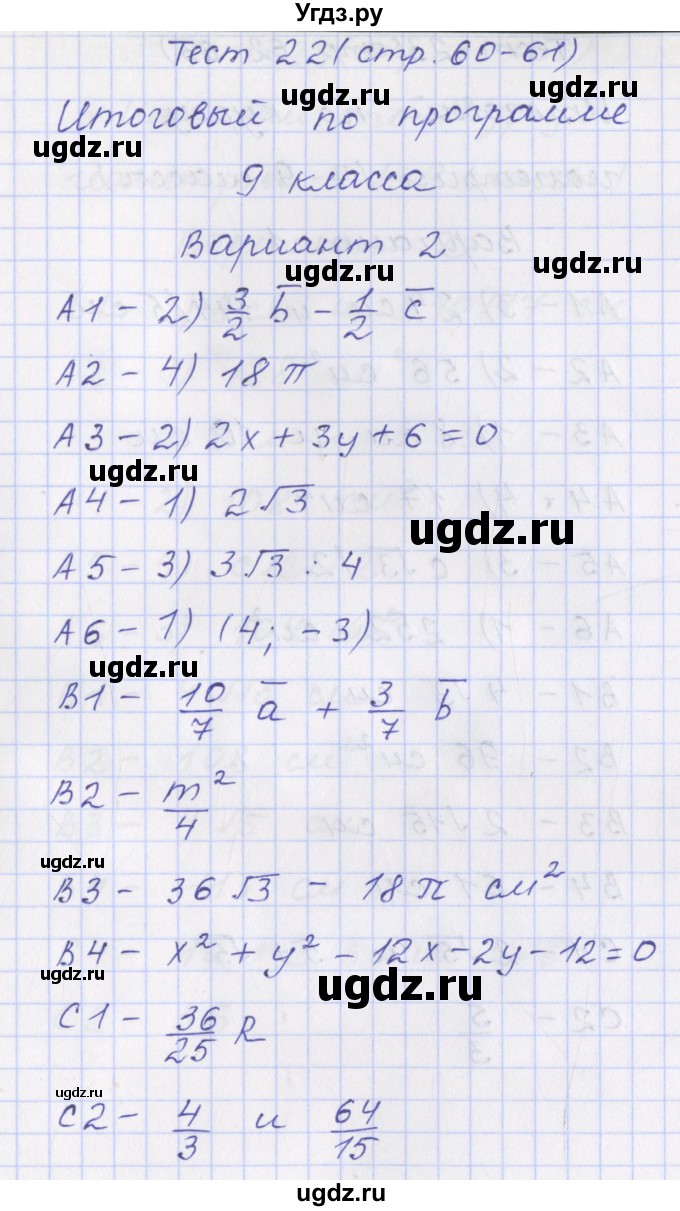 Угдз.ру
Тест 22 ( стр. 60-61)
ugdz.ru
Итоговый по программе
ugdz.ru ugdz.ru
9 класса
Вариант 2
ugdz.ru ugdz.ru
A1 - 2) 3/2 b̅ - 1/2 c̅
A2 - 4) 18 π
ugdz.ru
A3 - 2) 2x + 3y + 6 = 0
ugdz.ru
A4 - 1) 2√3
ugdz.ru
A5 - 3) 3√3 : 4
A6 - 1) (4; -3)
ugdz.ru
B1 - 10/7 a̅ + 3/7 b̅
ugdz.ru
B2 - m²/4
ugdz.ru
ugdz.ru
B3 - 36√3 - 18π см²
B4 - x² + y² - 12x - 2y - 12 = 0
ugdz.ru ugdz.ru
C1 - 36/25 R
ugdz.ru
C2 - 4/3 и 64/15
ugdz.ru